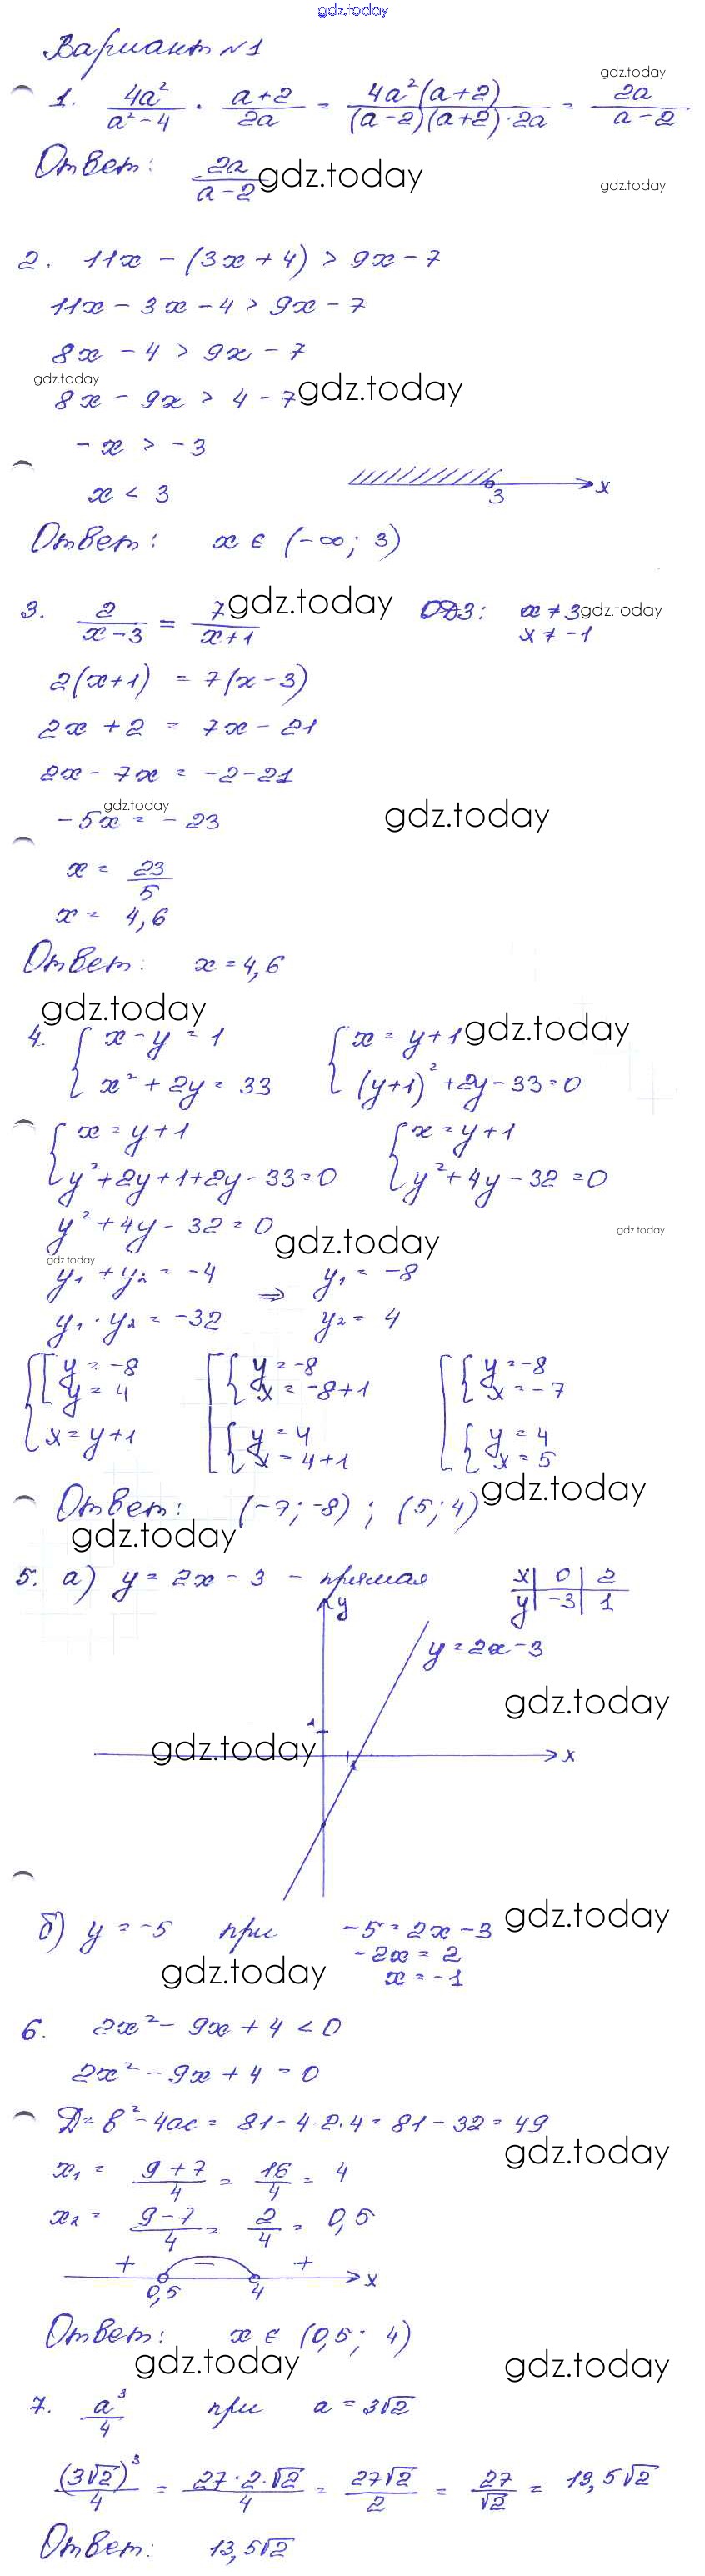 gdz.today
Вариант N1
1. 4a²/(a²-4) · (a+2)/2a = 4a²(a+2)/((a-2)(a+2)·2a) = 2a/(a-2)
gdz.today
Ответ: 2a/(a-2)
gdz.today
gdz.today
2. 11x - (3x+4) > 9x-7
11x - 3x - 4 > 9x - 7
8x - 4 > 9x - 7
gdz.today
8x - 9x > 4 - 7
gdz.today
- x > -3
x < 3
3 x
Ответ: x ∈ (-∞; 3)
3. 2/(x-3) = 7/(x+1) ОДЗ: x ≠ 3
gdz.today
gdz.today
x ≠ -1
2(x+1) = 7(x-3)
2x + 2 = 7x - 21
2x - 7x = -2-21
gdz.today
gdz.today
-5x = -23
x = 23/5
x = 4,6
Ответ: x = 4,6
gdz.today
gdz.today
4. { x - y = 1 { x = y+1
x² + 2y = 33 (y+1)² + 2y - 33 = 0
{ x = y+1 { x = y+1
y² + 2y + 1 + 2y - 33 = 0 y² + 4y - 32 = 0
y² + 4y - 32 = 0
gdz.today
gdz.today
gdz.today
y₁ + y₂ = -4 ⇒ y₁ = -8
y₁ · y₂ = -32 y₂ = 4
{ [ y = -8 [ { y = -8 [ { y = -8
y = 4 x = -8+1 x = -7
x = y+1 { y = 4 { y = 4
x = 4+1 x = 5
gdz.today
Ответ: (-7; -8) ; (5; 4)
gdz.today
5. а) y = 2x - 3 - прямая x | 0 | 2
y | -3 | 1
y
y = 2x-3
gdz.today
1
gdz.today
1 x
gdz.today
б) y = -5 при -5 = 2x - 3
-2x = 2
gdz.today
x = -1
6. 2x² - 9x + 4 < 0
2x² - 9x + 4 = 0
D = b² - 4ac = 81 - 4·2·4 = 81 - 32 = 49
gdz.today
x₁ = (9+7)/4 = 16/4 = 4
x₂ = (9-7)/4 = 2/4 = 0,5
+ - +
0,5 4 x
Ответ: x ∈ (0,5; 4)
gdz.today
gdz.today
7. a³/4 при a = 3√2
(3√2)³/4 = 27·2·√2/4 = 27√2/2 = 27/√2 = 13,5√2
Ответ: 13,5√2